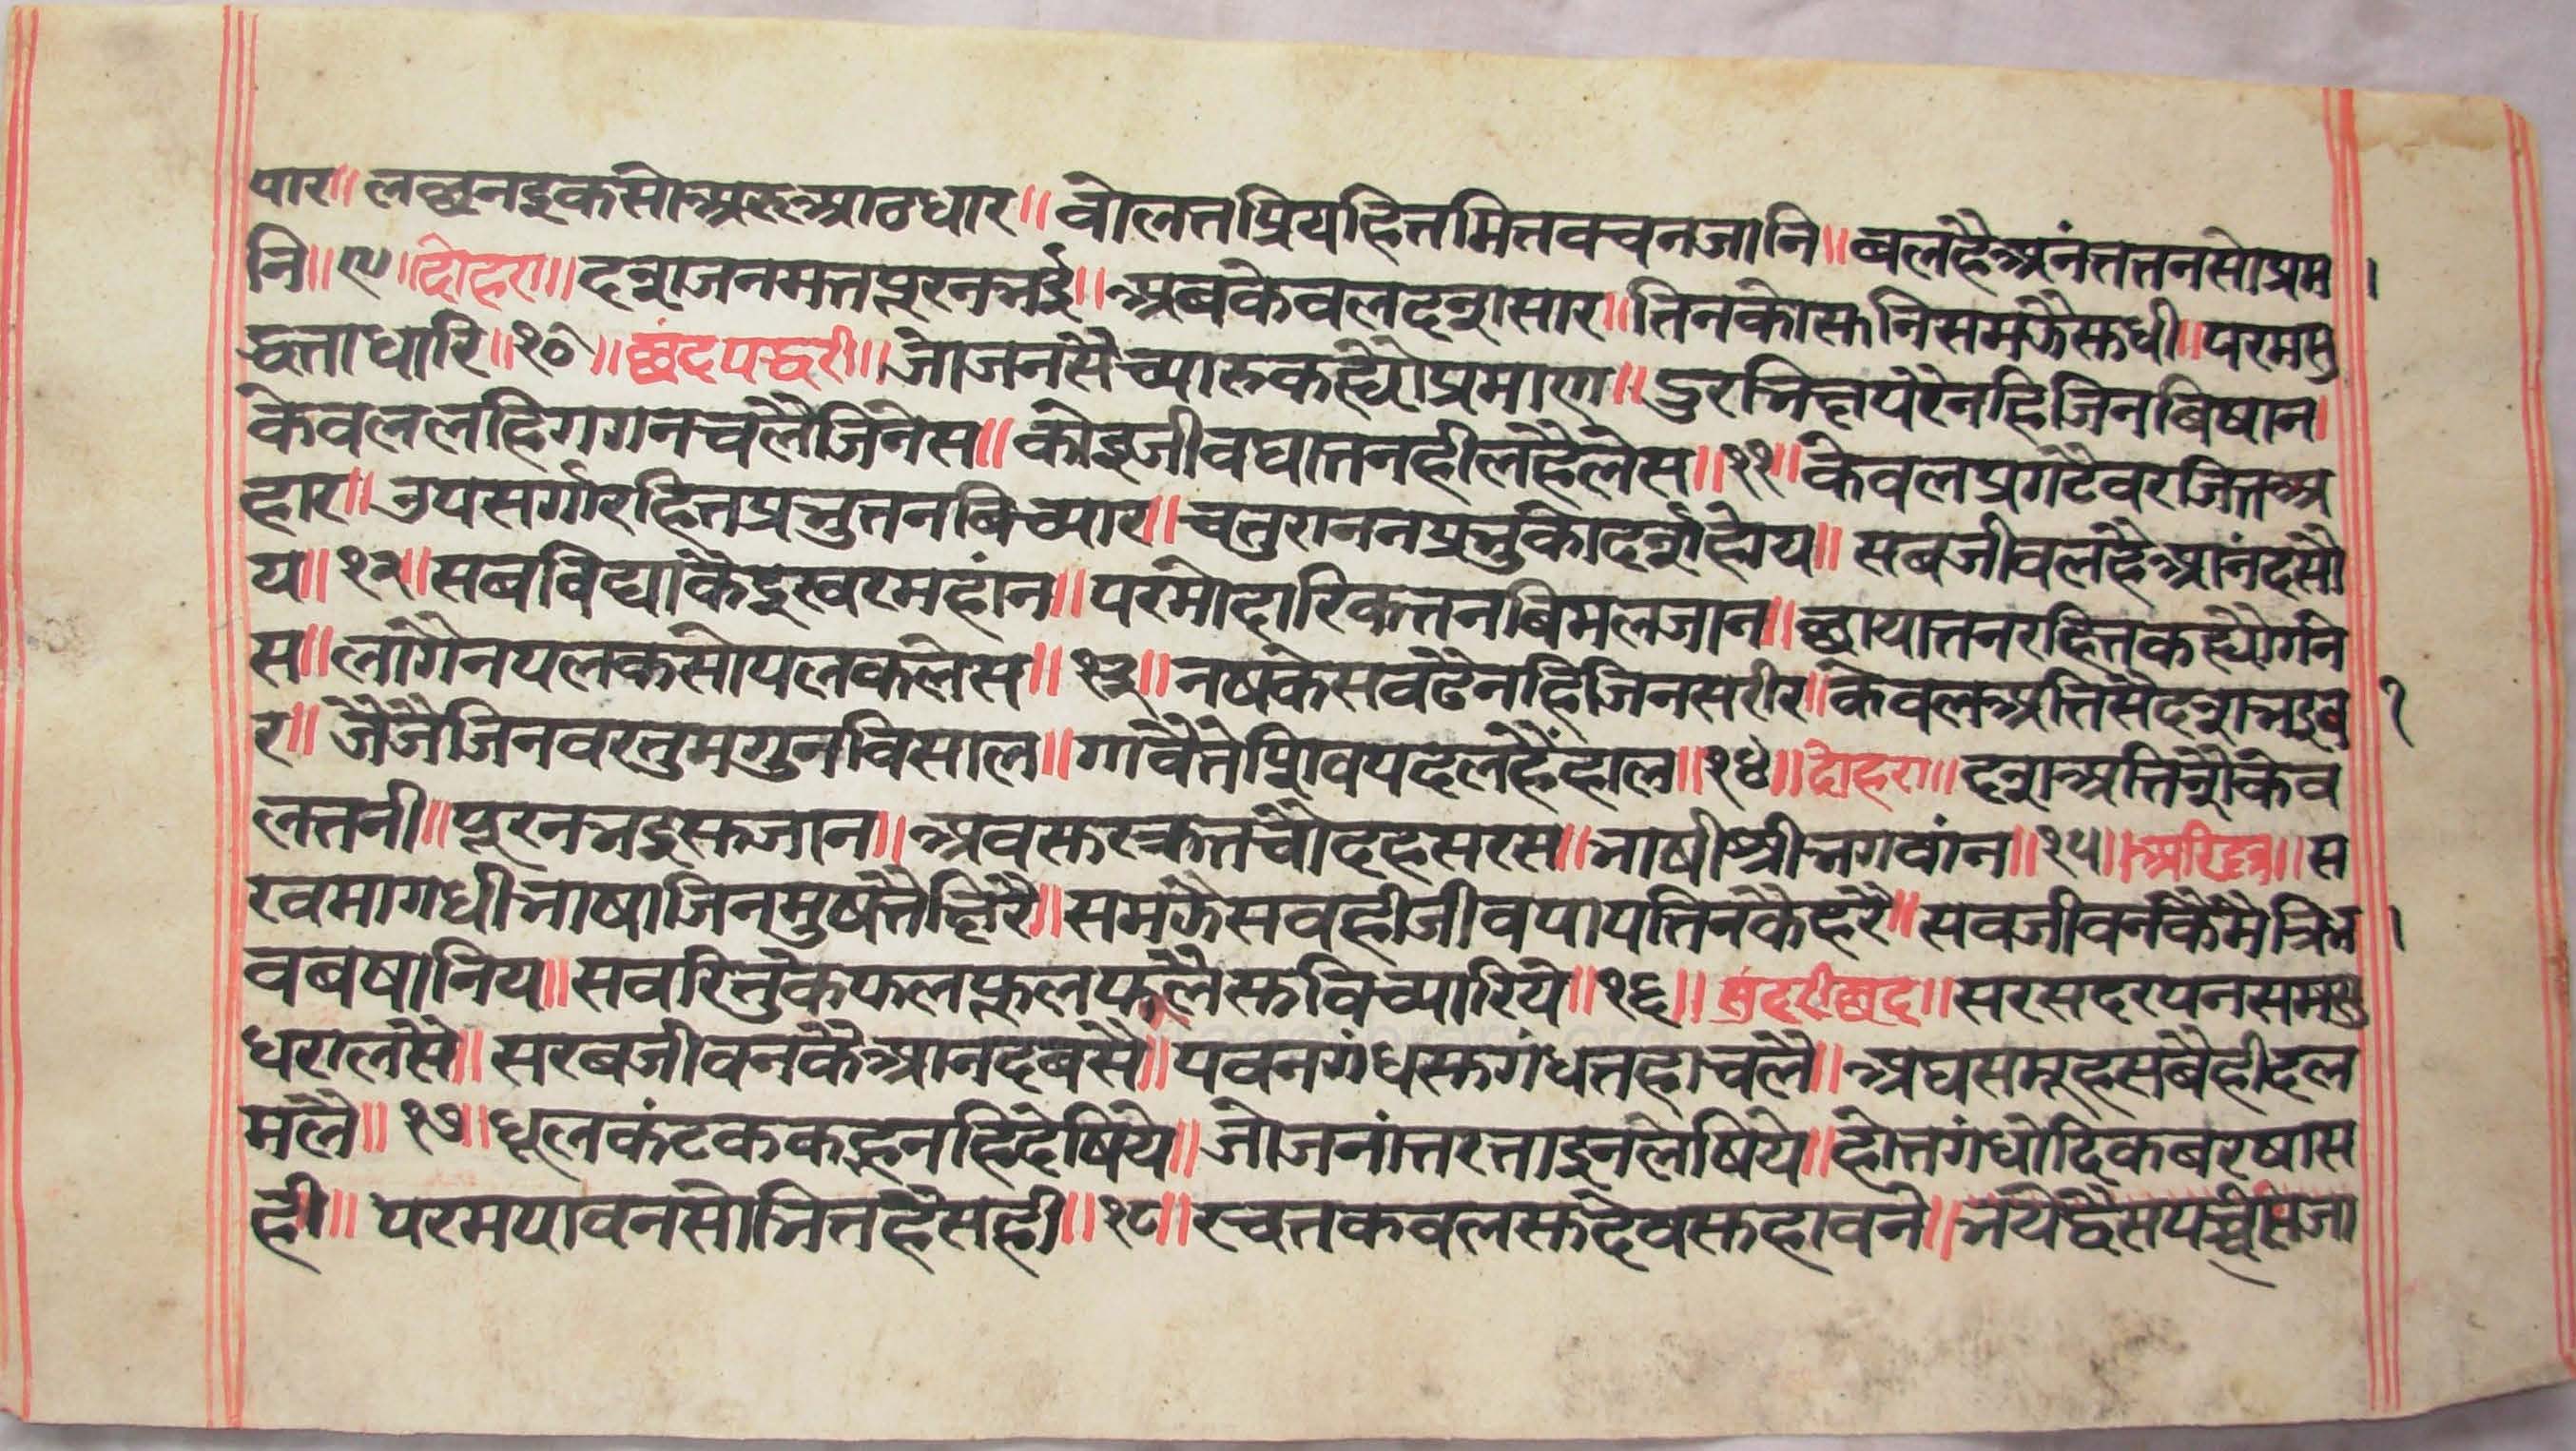 पार॥ लछनइकसोअरुआठधार॥ वोलतप्रियहितमितवचनजानि॥ बलहैअनंततनसोप्रम।
नि॥९॥दोहरा॥ दशजनमतपूरनभई॥ अबकेवलदशसार॥ तिनकोसुनिसमझैसुधी॥ परमसु
द्धताधारि॥१०॥ छंदपद्धरी॥ जोजनसैच्यारुकह्यौप्रमाण॥ दुरभिक्षपरेनहिजिनबिषान।
केवललहिगगनचलैजिनेस॥ कोइजीवघातनहीलहैलेस॥११॥ केवलप्रगटैवरजितअ
हार॥ उपसर्गरहितप्रभुतनबिच्यार॥ चतुराननप्रभुकोदर्शहोय॥ सबजीवलहैआनंदसो
य॥१२॥ सबविद्याकैइस्वरमहांन॥ परमोदारिकतनबिमलजान॥ छायातनरहितकह्यौगने
स॥ लागैनपलकसोपलकलेस॥१३॥ नषकेसवढेनहिजिनसरीर॥ केवलअतिसैदशभइब १
र॥ जैजैजिनवरतुमगुनविसाल॥ गावैतेशिवपदलहैंहाल॥१४॥ दोहरा॥ दशअतिशैकेव
लतनी॥ पूरनभइसुजान॥ अवसुरक्रतचौदहसरस॥ भाषीश्रीभगवांन॥१५॥ अरिल्ल॥ स
रवमागधीभाषाजिनमुषतैझिरै॥ समझैसवहीजीवपापतिनकैहरै॥ सवजीवनकैमैत्रिभ।
वबषानिय॥ सवरितुकेफलफूलफलैसुविच्यारिये॥१६॥ सुंदरीछंद॥ सरसदरपनसमसु
धरालसै॥ सरबजीवनकैआनदबसै॥ पवनगंधसुगंधतहाचलै॥ अघसमूहसबैहीदल
मलै॥१७॥ धूलकंटककहूनहिदेषिये॥ जोजनांतरताइनलेषिये॥ होतगंधोदिकबरषास
ही॥ परमपावनसोभितहैसही॥१८॥ रचतकवलसुदेवसुहावने॥ भयेद्वैसपच्चीसजा